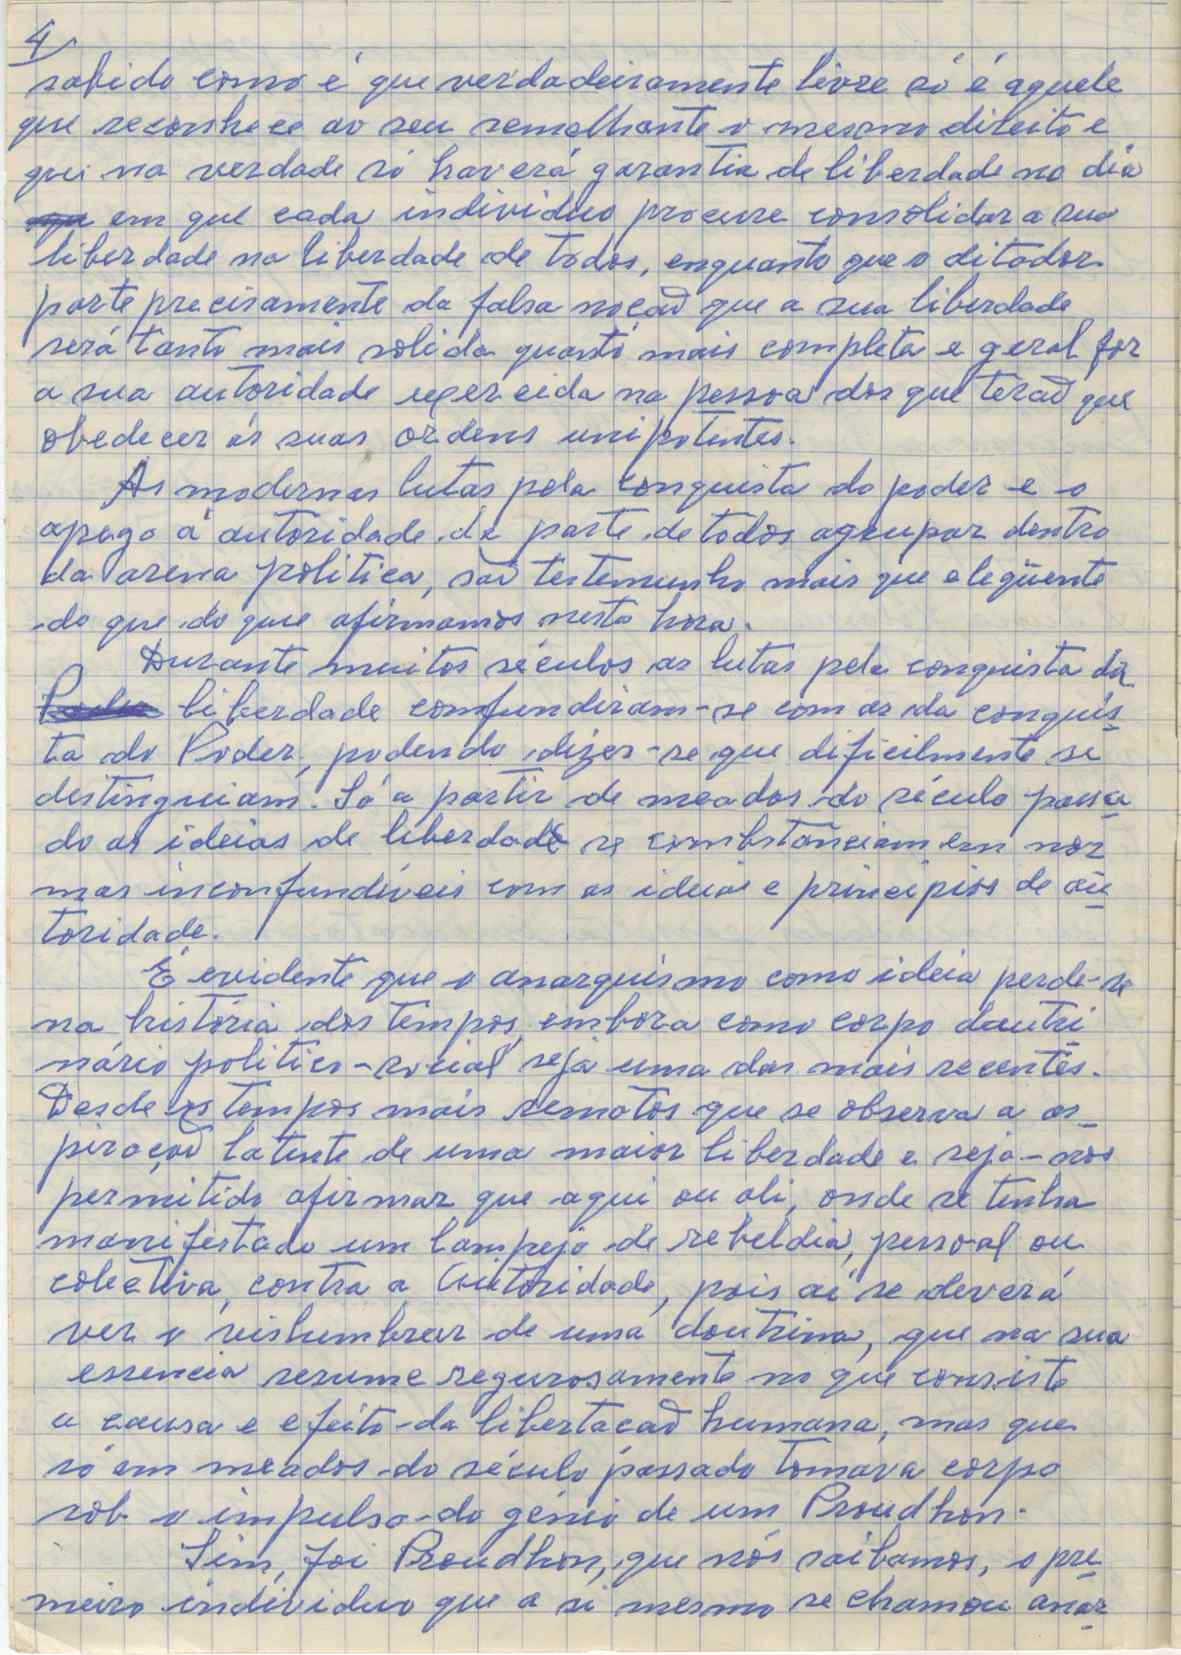 4
sabido como é que verdadeiramente livre só é aquele
que reconhece ao seu semelhante o mesmo direito e
que na verdade só haverá garantia de liberdade no dia
em que cada individuo procure consolidar a sua
liberdade na liberdade de todos, enquanto que o ditador
parte precisamente da falsa noçaõ que a sua liberdade
será tanto mais solida quanto mais completa e geral for
a sua autoridade exercida na pessoa dos que teraõ que
obedecer ás suas ordens unipotentes.
As modernas lutas pela conquista do poder e o
apego á autoridade de parte de todos agrupar dentro
da arena politica, saõ testemunho mais que eleqüente
do que do que afirmamos nesta hora.
Durante muitos séculos as lutas pela conquista da
liberdade comfundiram-se com as da conquis
ta do Poder, podendo dizer-se que dificilmente se
destinguiam. Só a partir de meados do século passa
do as ideias de liberdade se combstânciam em nor
mas inconfundíveis com as ideias e principios de au
toridade.
É evidente que o anarquismo como ideia perde-se
na história dos tempos, embora como corpo doutri
nário politico-social seja uma das mais recentes.
Desde os tempos mais remotos que se observa a as
piraçaõ latente de uma maior liberdade e seja-nos
permitido afirmar que aqui ou ali, onde se tenha
manifestado um lampejo de rebeldia, pessoal ou
coletiva, contra a Autoridade, pois aí se deverá
ver o vislumbrar de uma doutrina, que na sua
essencia resume regurosamente no que consiste
a causa e efeito da libertacaõ humana, mas que
só em meados do século passado tomava corpo
sob o impulso do génio de um Proudhon.
Sim, foi Proudhon, que nós saibamos, o pre
meiro individuo que a si mesmo se chamou anar